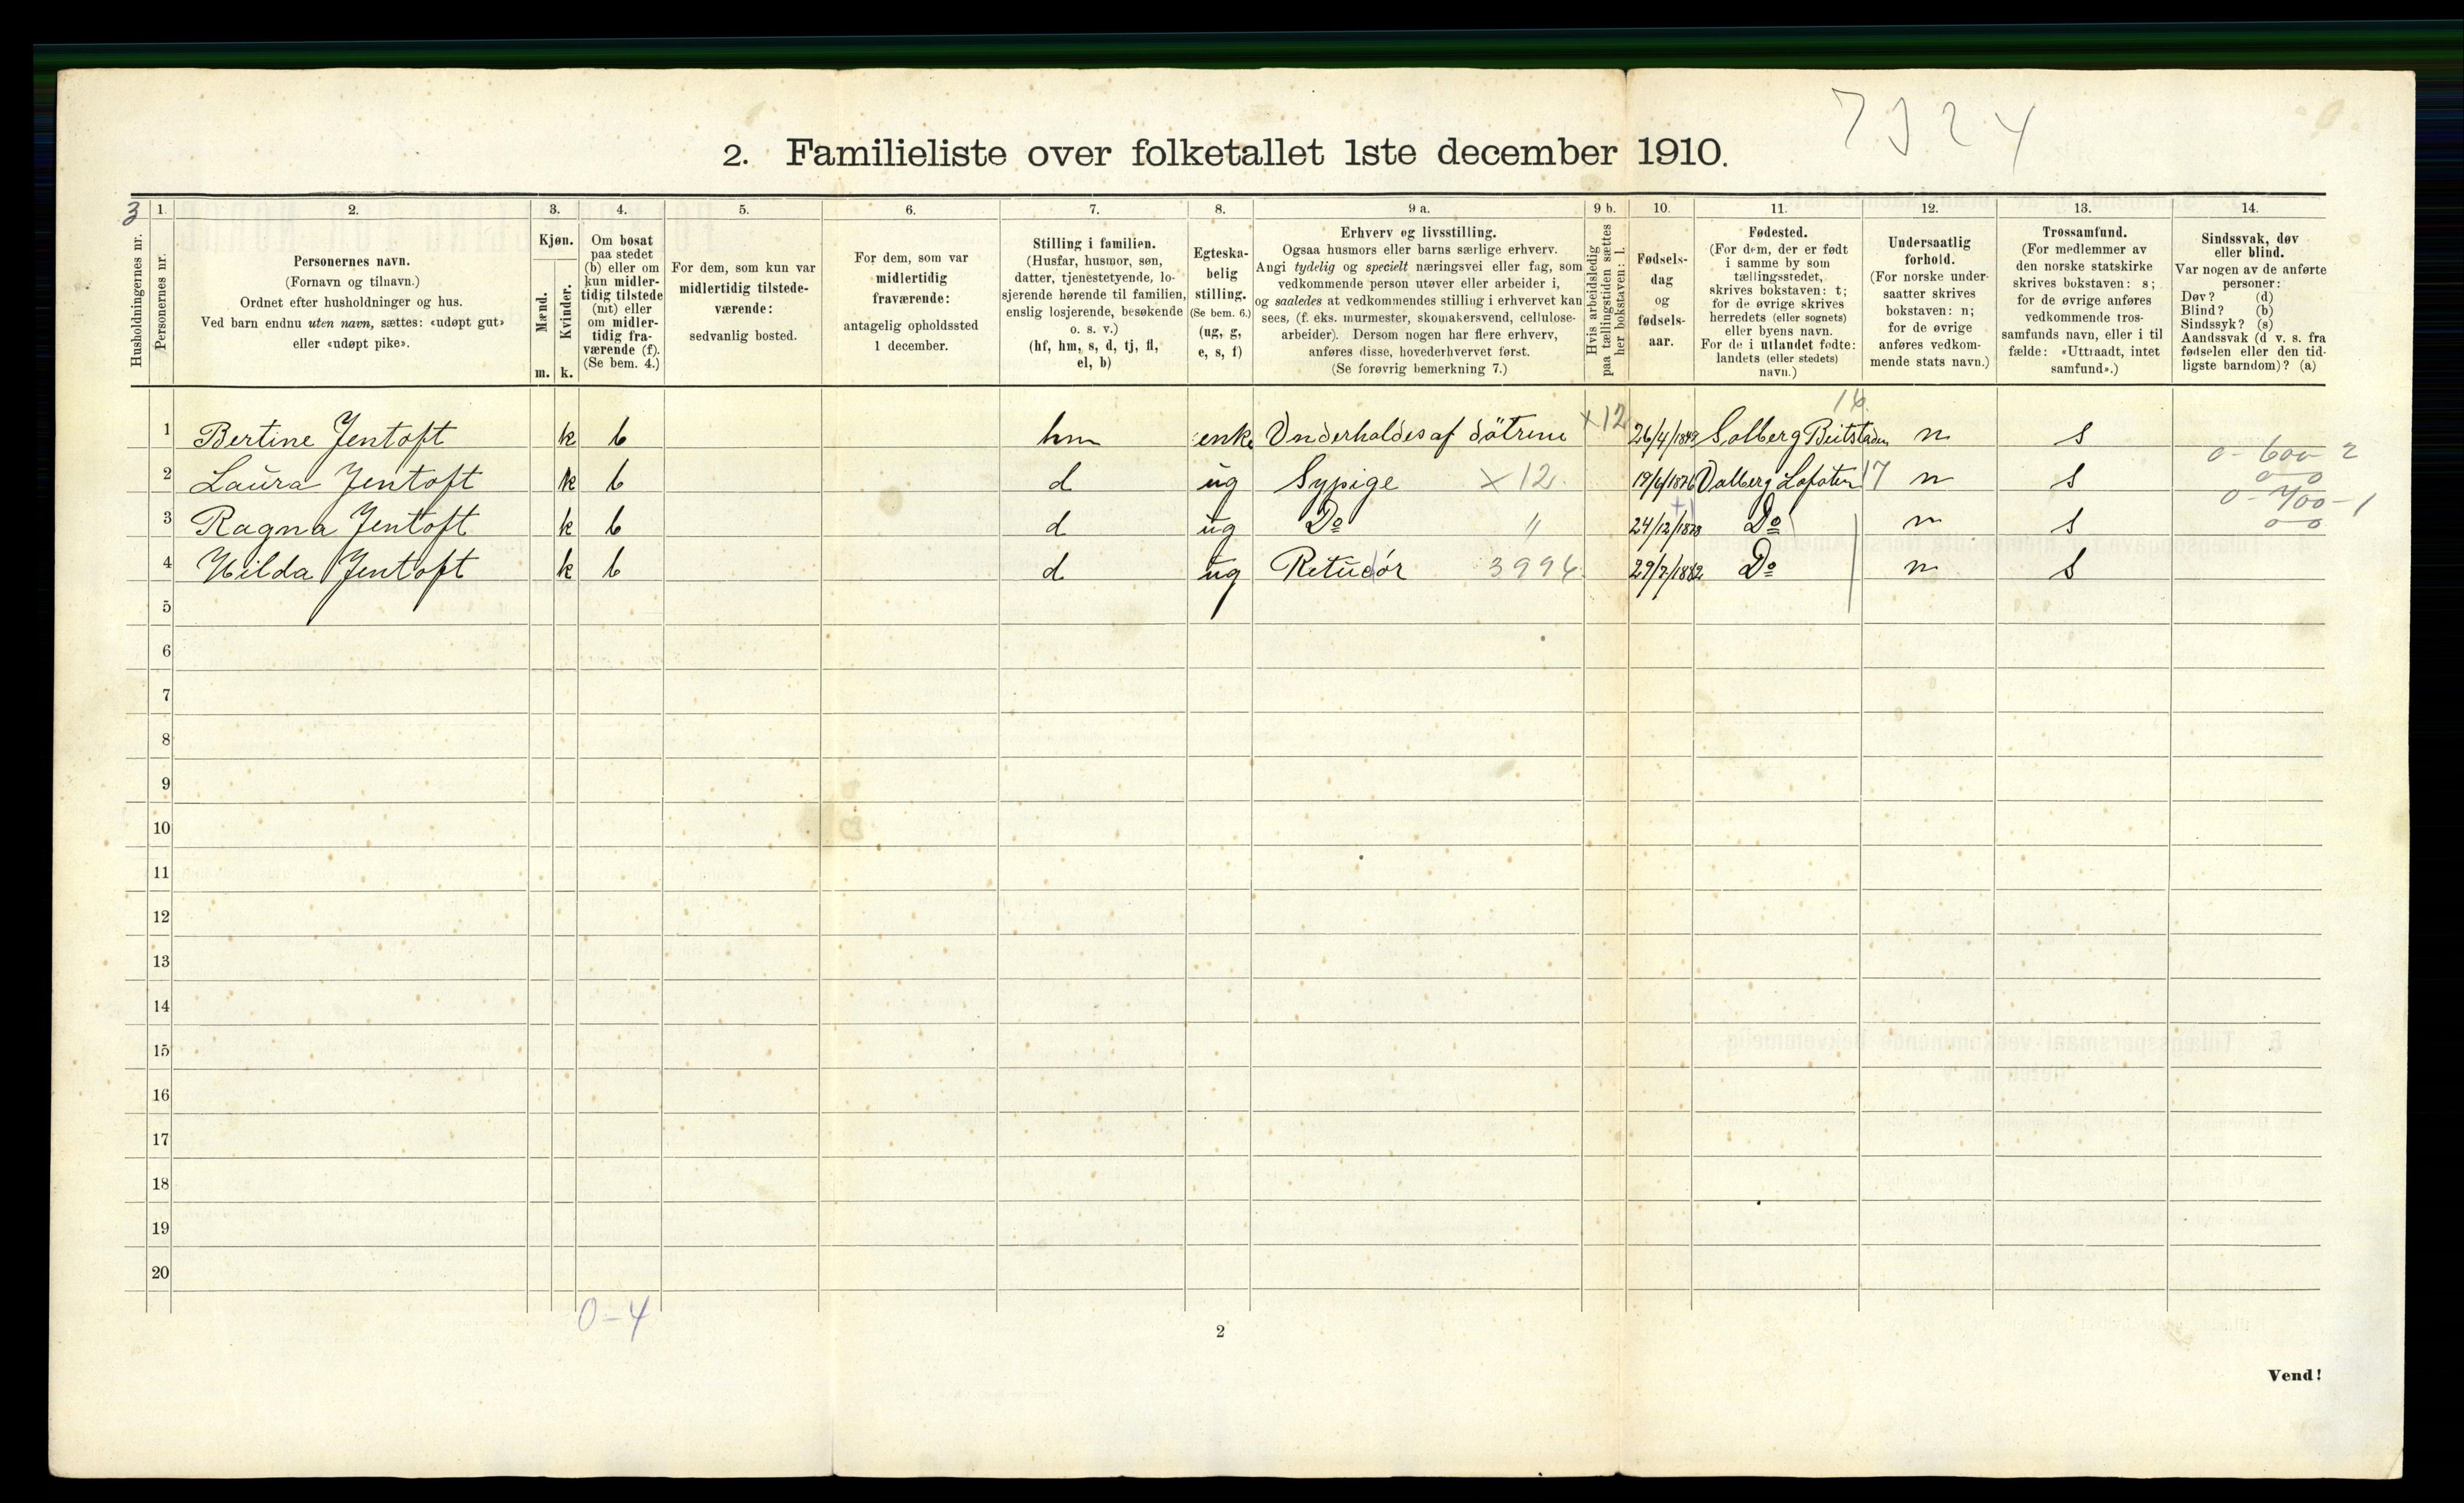 7324
2. Familieliste over folketallet 1ste december 1910.
3
Husholdningernes nr.
1.
Personernes nr.
2.
Personernes navn.
(Fornavn og tilnavn.)
Ordnet efter husholdninger og hus.
Ved barn endnu uten navn, sættes: «udøpt gut»
eller «udøpt pike».
3.
Kjøn.
Mænd.
Kvinder.
m. k.
4.
Om bosat
paa stedet
(b) eller om
kun midler-
tidig tilstede
(mt) eller
om midler-
tidig fra-
værende (f).
(Se bem. 4.)
5.
For dem, som kun var
midlertidig tilstede-
værende:
sedvanlig bosted.
6.
For dem, som var
midlertidig
fraværende:
antagelig opholdssted
1 december.
7.
Stilling i familien.
(Husfar, husmor, søn,
datter, tjenestetyende, lo-
sjerende hørende til familien,
enslig losjerende, besøkende
o. s. v.)
(hf, hm, s, d, tj, fl,
el, b)
8.
Egteska-
belig
stilling.
(Se bem. 6.)
(ug, g,
e, s, f)
9 a.
Erhverv og livsstilling.
Ogsaa husmors eller barns særlige erhverv.
Angi tydelig og specielt næringsvei eller fag, som
vedkommende person utøver eller arbeider i,
og saaledes at vedkommendes stilling i erhvervet kan
sees, (f. eks. murmester, skomakersvend, cellulose-
arbeider). Dersom nogen har flere erhverv,
anføres disse, hovederhvervet først.
(Se forøvrig bemerkning 7.)
9 b.
Hvis arbeidsledig
paa tællingstiden sættes
her bokstaven: l.
10.
Fødsels-
dag
og
fødsels-
aar.
11.
Fødested.
(For dem, der er født
i samme by som
tællingsstedet,
skrives bokstaven: t;
for de øvrige skrives
herredets (eller sognets)
eller byens navn.
For de i utlandet fødte:
landets (eller stedets)
navn.)
12.
Undersaatlig
forhold.
(For norske under-
saatter skrives
bokstaven: n;
for de øvrige
anføres vedkom-
mende stats navn.)
13.
Trossamfund.
(For medlemmer av
den norske statskirke
skrives bokstaven: s;
for de øvrige anføres
vedkommende tros-
samfunds navn, eller i til
fælde: «Uttraadt, intet
samfund».)
14.
Sindssvak, døv
eller blind.
Var nogen av de anførte
personer:
Døv? (d)
Blind? (b)
Sindssyk? (s)
Aandssvak (d v. s. fra
fødselen eller den tid-
ligste barndom)? (a)
16
1 Bertine Jentoft k b hm enke Underholdes af döttrene x12 26/4/1849 Solberg Beitstaden n s
0-600-2
2 Laura Jentoft k b d ug Sypige x12 19/6/1876 Valberg Lofoten 17 n s 0-0
0-400-1
3 Ragna Jentoft k b d ug Do " 24/12/1878 Do n s 0-0
4 Hilda Jentoft k b d ug Retuchör 3994 29/7/1882 Do n s
5
6
7
8
9
10
11
12
13
14
15
16
17
18
19
20
0-4
2
Vend!